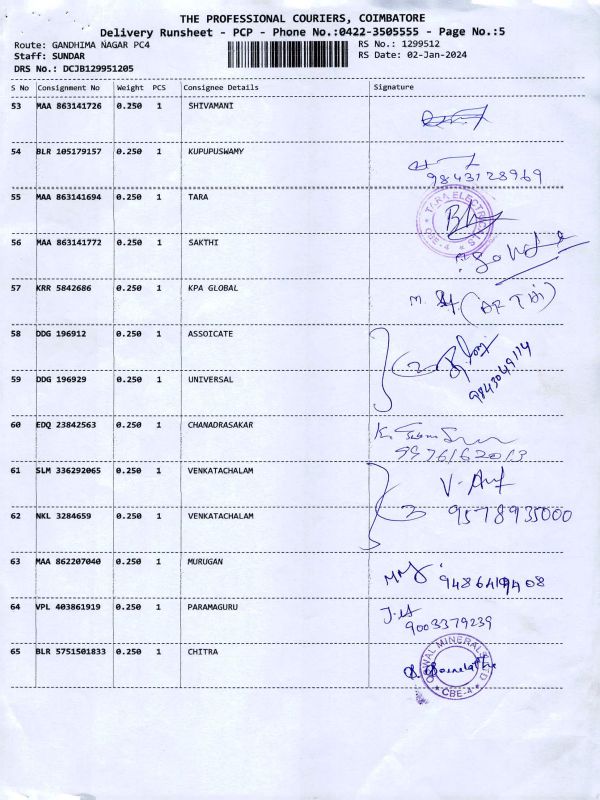 THE PROFESSIONAL COURIERS, COIMBATORE
Delivery Runsheet - PCP - Phone No.:0422-3505555 - Page No.:5
Route: GANDHIMA NAGAR PC4
RS No.: 1299512
Staff: SUNDAR
RS Date: 02-Jan-2024
DRS No.: DCJB129951205
S No Consignment No Weight PCS Consignee Details Signature
53 MAA 863141726 0.250 1 SHIVAMANI
54 BLR 105179157 0.250 1 KUPUPUSWAMY
9843128969
55 MAA 863141694 0.250 1 TARA
TARA ELECTRO
CBE-4
56 MAA 863141772 0.250 1 SAKTHI
57 KRR 5842686 0.250 1 KPA GLOBAL
M. (ARTHI)
58 DDG 196912 0.250 1 ASSOICATE
2
59 DDG 196929 0.250 1 UNIVERSAL
9843049114
60 EDQ 23842563 0.250 1 CHANADRASAKAR
9976162013
61 SLM 336292065 0.250 1 VENKATACHALAM
62 NKL 3284659 0.250 1 VENKATACHALAM
9578935000
63 MAA 862207040 0.250 1 MURUGAN
64 VPL 403861919 0.250 1 PARAMAGURU
9003379239
65 BLR 5751501833 0.250 1 CHITRA
MINERALS
CBE-4